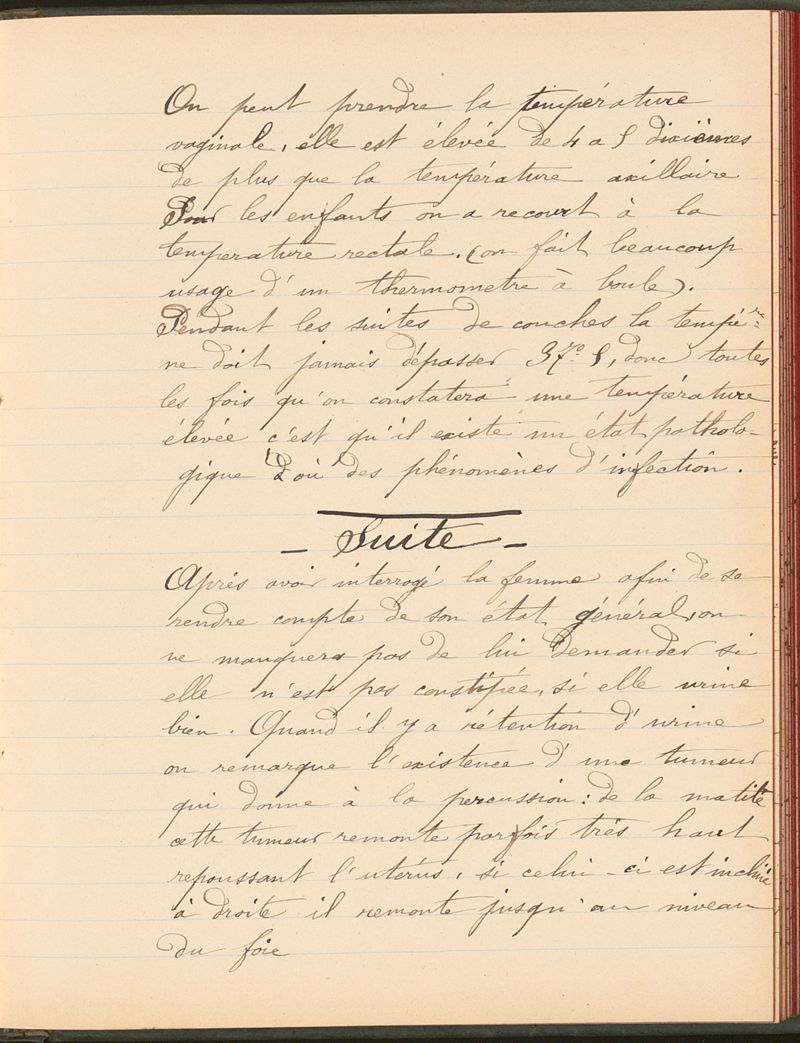 On peut prendre la température
vaginale, elle est élevée de 4 a 5 dixièmes
de plus que la température axillaire
Pour les enfants on a recourt à la
temperature rectale. (on fait beaucoup
usage d'un thermometre à boule).
Pendant les suites de couches la tempére
ne doit jamais dépasser 37° 5, donc toutes
les fois qu'on constatera une température
élevée c'est qu'il existe un état patholo-
gique d'où des phénomènes d'infection.
- Suite -
Après avoir interrogé la femme afin de se
rendre compte de son état général, on
ne manquera pas de lui demander si
elle n'est pas constipée, si elle urine
bien. Quand il y a rétention d'urine
on remarque l'existence d'une tumeur
qui donne à la percussion: de la matité
cette tumeur remonte parfois très haut
repoussant l'utérus, si celui-ci est incliné
à droite il remonte jusqu'au niveau
du foie